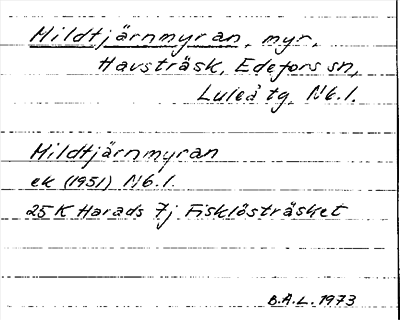 Mildtjärnmyran, myr,
Havsträsk, Edefors sn,
Luleå tg, Nb.l.
Mildtjärnmyran
ek (1951) Nb.l.
25K Harads 7j Fisklösträsket
B.Ä.L. 1973